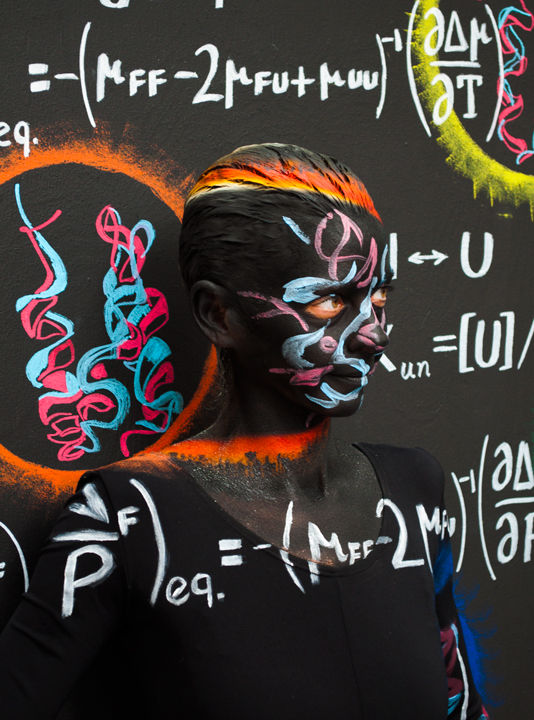 = -(μFF-2μFU+μUU)⁻¹(∂Δμ/∂T)
eq.
↔ U
un =[U]/
F/P)eq. = -(μFF-2μFU )⁻¹(∂Δ/∂P
F)